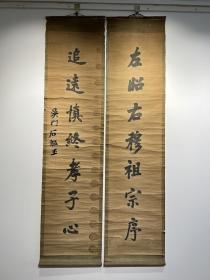 左昭右穆祖宗序
追遠慎終孝子心
吳門石韞玉